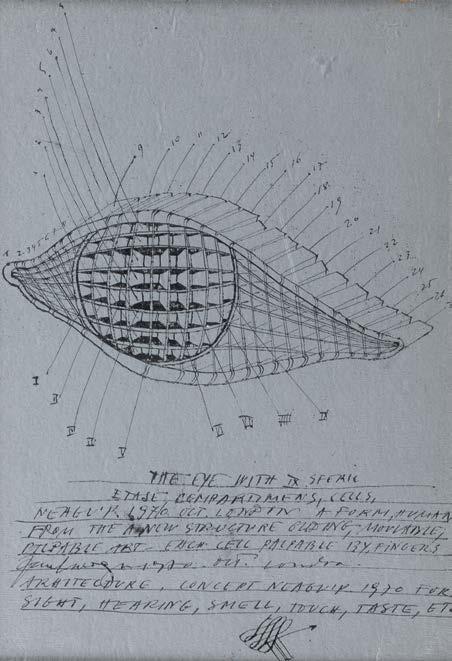 9 10 11 12 13 14 15 16 17 18 19 20 21 22 23 24 25
I II III IV V VI VII VIII IX
THE EYE WITH IX SFERIC
ETAJE COMPARTIMENS, CELLS,
NEAGU P. 1970 OCT. LONDON A FORM, HUMAN
FROM THE A NEW STRUCTURE MOVABLE,
PALPABLE ART. EACH CELL PALPABLE BY FINGERS
1970. Oct. Londra.
ARCHITECTURE. CONCEPT NEAGU P. 1970 FOR
SIGHT, HEARING, SMELL, TOUCH, TASTE, ETC